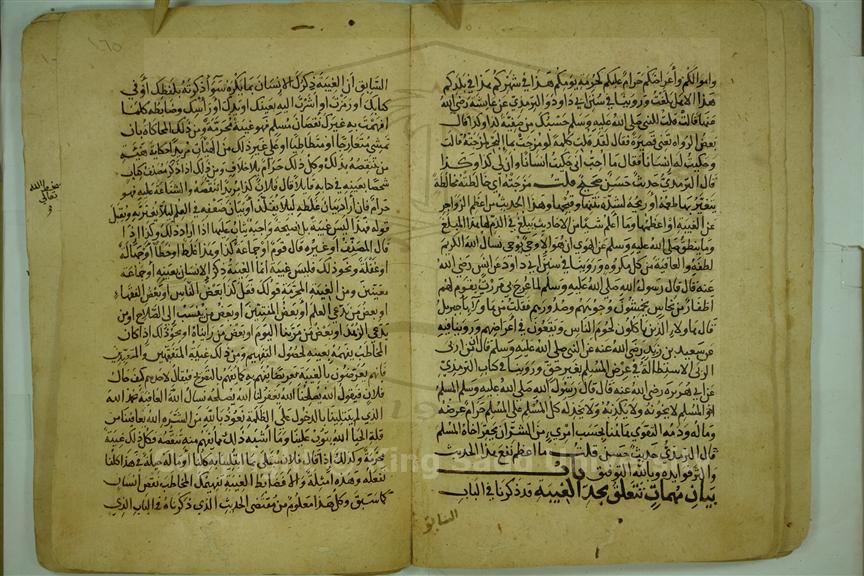 واموالكم وأعراضكم حرام عليكم كحرمة يومكم هذا في شهركم هذا في بلدكم
هذا ألا هل بلغت وروينا في سنن أبي داود والترمذي عن عايشة رضي الله
عنها قالت قلت للنبي صلى الله عليه وسلم حسبك من صفية كذا وكذا قال
بعض الرواه تعني قصيرة فقال لقد قلت كلمة لو مزجت بماء البحر لمزجته قالت
وحكيت له إنسانا فقال ما أحب أني حكيت إنسانا وأن لي كذا وكذا
قال الترمذي حديث حسن صحيح قلت مزجته أي خالطته مخالطة
يتغير بها طعمه أو ريحه لشدة نتنها وقبحها وهذا الحديث من أعظم الزواجر
عن الغيبة أو أعظمها وما أعلم شيئا من الأحاديث يبلغ في الذم لها هذا المبلغ
وما ينطق عن الهوى إن هو إلا وحي يوحى نسال الله الكريم
لطفه والعافية من كل مكروه وروينا في سنن أبي داود عن انس رضي الله
عنه قال قال رسول الله صلى الله عليه وسلم لما عرج بي مررت بقوم لهم
أظفار من نحاس يخمشون وجوههم وصدورهم فقلت من هاولاء يا جبريل
قال هاولاء الذين ياكلون لحوم الناس ويقعون في أعراضهم وروينا فيه
عن سعيد بن زيد رضي الله عنه عن النبي صلى الله عليه وسلم قال ان من أربى
الربى الاستطالة في عرض المسلم بغير حق وروينا في كتاب الترمذي
عن أبي هريرة رضي الله عنه قال قال رسول الله صلى الله عليه وسلم المسلم
اخو المسلم لا يخونه ولا يكذبه ولا يخذله كل المسلم على المسلم حرام عرضه
وماله ودمه التقوى هاهنا بحسب امرئ من الشر أن يحقر اخاه المسلم
قال الترمذي حديث حسن قلت ما أعظم نفع هذا الحديث
وأكثر فوايده وبالله التوفيق باب
بيان مهمات تتعلق بحد الغيبة قد ذكرنا في الباب
السابق
١٦٥
السابق أن الغيبة ذكرك الإنسان بما يكره سواء ذكرته بلفظك أو في
كتابك أو رمزت أو أشرت اليه بعينك أو يدك أو رأسك وضابطه كلما
افهمت به غيرك نقصان مسلم فهو غيبة محرمة ومن ذلك المحاكاة بان
يمشي متعارجا أو متطاطيا أو على غير ذلك من الهيآت مريدا حكاية هيئة
من تنقصه بذلك وكل ذلك حرام بلا خلاف ومن ذلك اذا ذكر مصنف كتاب
شخصا بعينه في كتابه قايلا قال فلان كذا يريد تنقصه والشناعة عليه فهو
حرام فان أراد بيان غلطه ليلا يقلد أو بيان ضعفه في العلم ليلا يغتر به ويقبل
قوله فهذا ليس غيبة بل نصيحة واجبة يثاب عليها اذا اراد ذلك وكذا إذا
قال المصنف أو غيره قال قوم أو جماعة كذا وهذا غلط أو خطأ أو جهالة
أو غفلة ونحو ذلك فليس غيبة انما الغيبة ذكر الإنسان بعينه أو جماعة
معينين ومن الغيبة المحرمة قولك فعل كذا بعض الناس أو بعض الفقهاء
أو بعض من يدعي العلم أو بعض المفتيين أو بعض من ينسب إلى الصلاح أو من
يدعي الزهد أو بعض من مر بنا اليوم أو بعض من رايناه أو نحو ذلك إذا كان
المخاطب يفهمه بعينه لحصول التفهيم ومن ذلك غيبة المتفقهين والمتعبدين
فإنهم يعرضون بالغيبة تعريضا يفهم به كما يفهم بالتصريح فيقال لاحدهم كيف حال
فلان فيقول الله يصلحنا الله يغفر لنا الله يصلحه نسال الله العافية نحمد الله
الذي لم يبتلينا بالدخول على الظلمة نعوذ بالله من الشر الله يعافينا من
قلة الحيا الله يتوب علينا وما أشبه ذلك مما يفهم منه تنقصه فكل ذلك غيبة
محرمة وكذلك إذا قال فلان يبتلى بما ابتلينا به كلنا أو ماله حيلة في هذا كلنا
نفعله وهذه أمثلة والا فضابط الغيبة تفهيمك المخاطب نقص إنسان
كما سبق وكل هذا معلوم من مقتضى الحديث الذي ذكرناه في الباب الذي